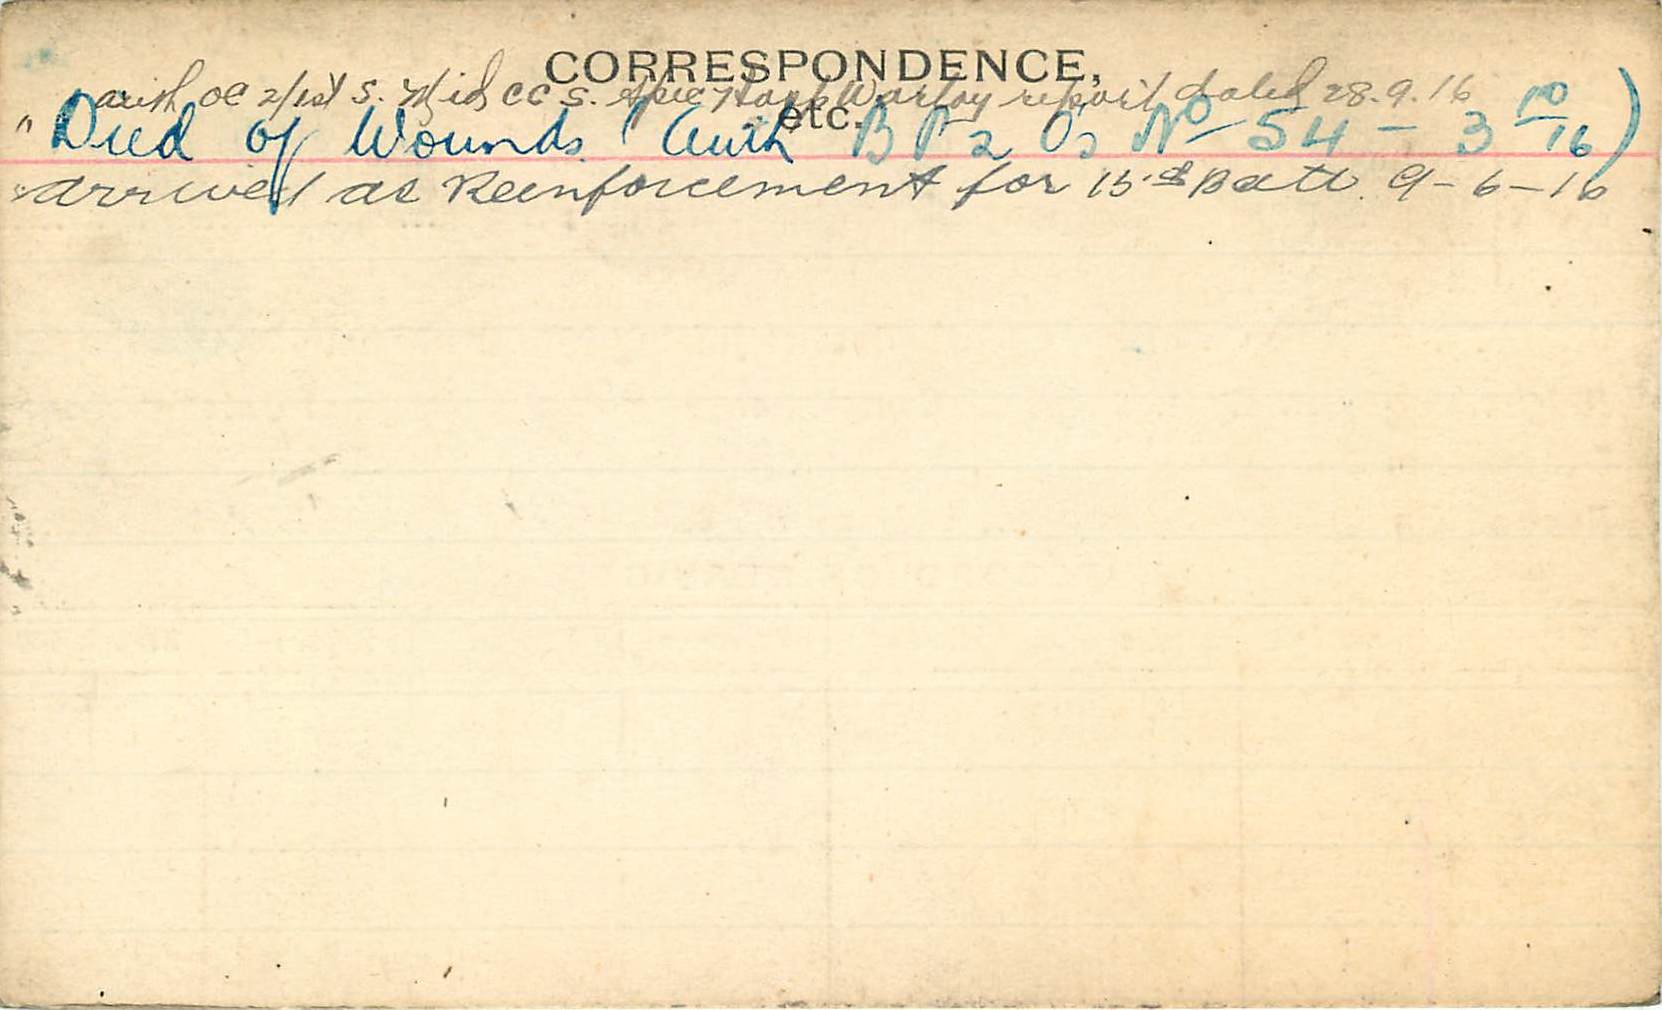 CORRESPONDENCE,
auth OC 2/1st S. Mid CCS. Warloy report dated 28.9.16
etc.
" Died of Wounds (Auth B P2 Os No 54 - 3 10/16)
arrived as Reinforcement for 15th Batt. 9-6-16